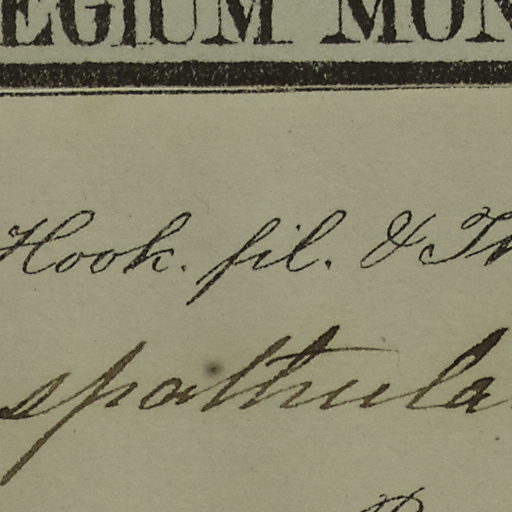 EGIUM MON
Hook. fil. & Th
spathula